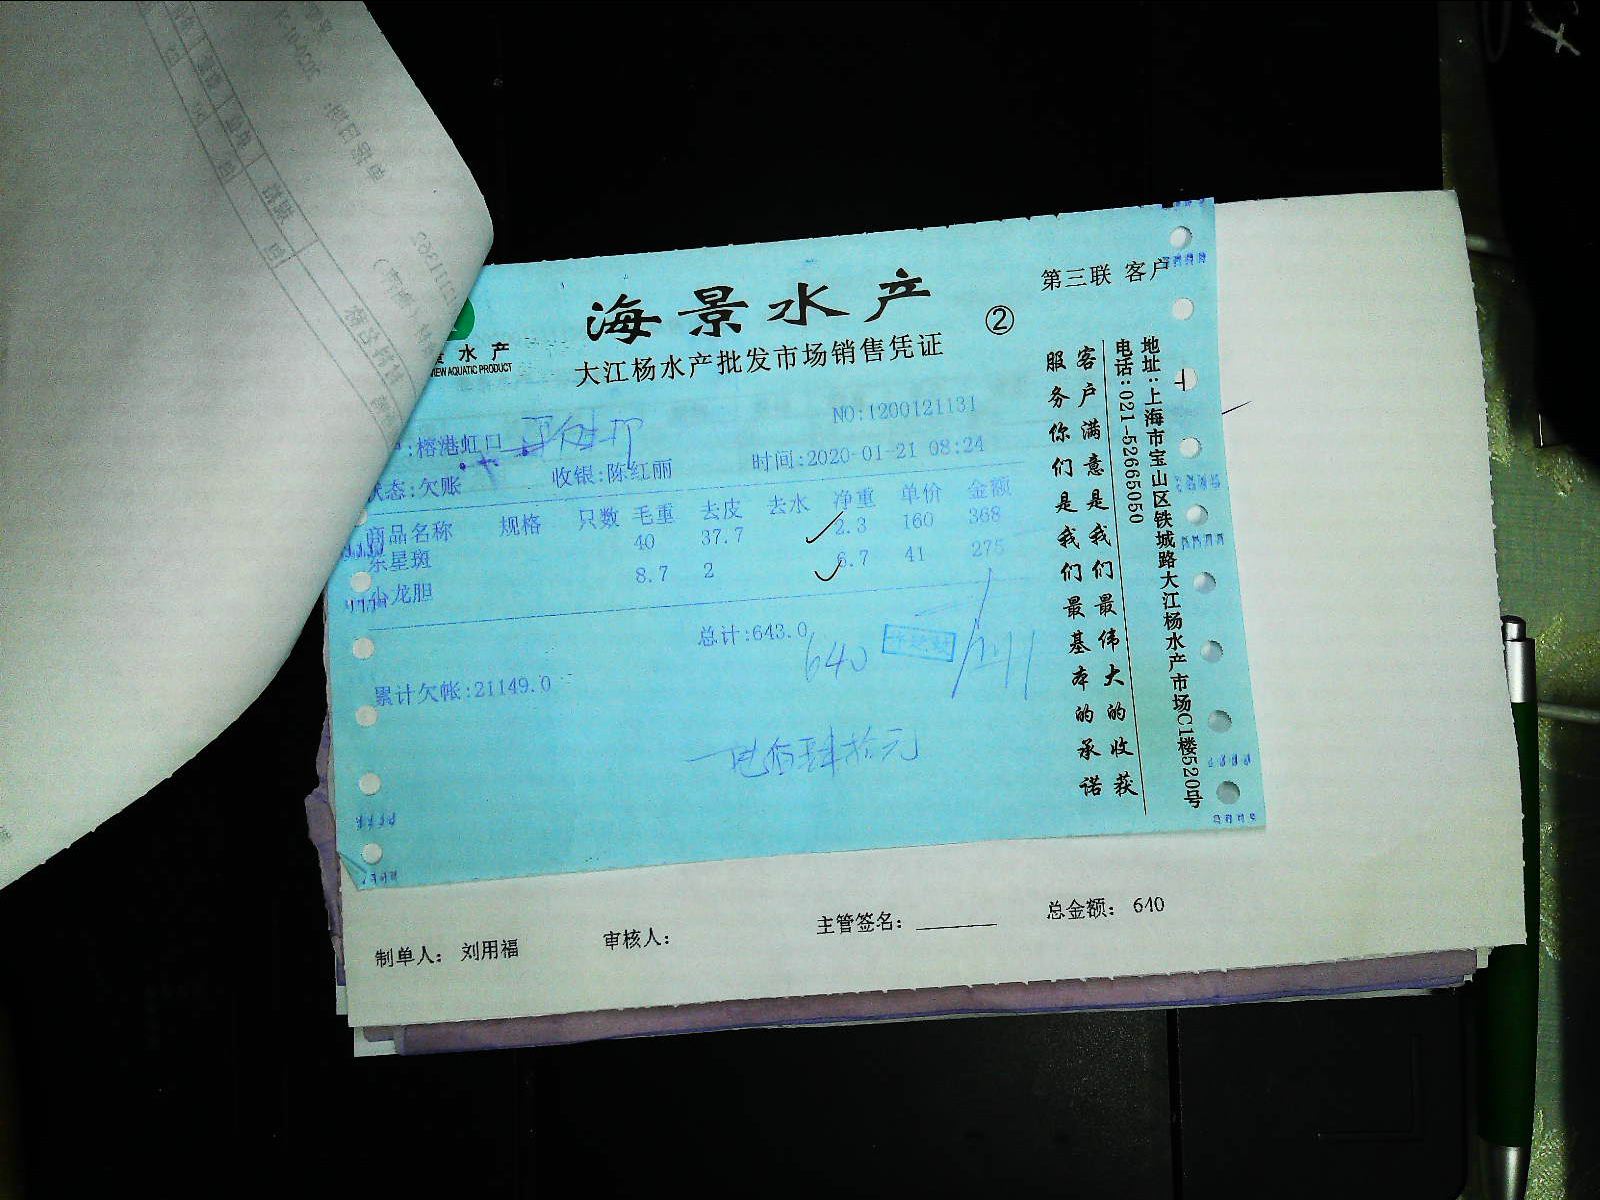 海景水产
第三联 客户
②
水产
VIEW AQUATIC PRODUCT
大江杨水产批发市场销售凭证
NO:1200121131
:榕港虹口
状态:欠账 收银:陈红丽 时间:2020-01-21 08:24
商品名称 规格 只数 毛重 去皮 去水 净重 单价 金额
东星斑 40 37.7 2.3 160 368
小龙胆 8.7 2 6.7 41 275
总计:643.0
640
累计欠帐:21149.0
陆佰肆拾元
客户满意是我们最伟大的收获
服务你们是我们最基本的承诺
地址:上海市宝山区铁城路大江杨水产市场C1楼520号
电话:021-52665050
制单人: 刘用福 审核人: 主管签名: 总金额: 640